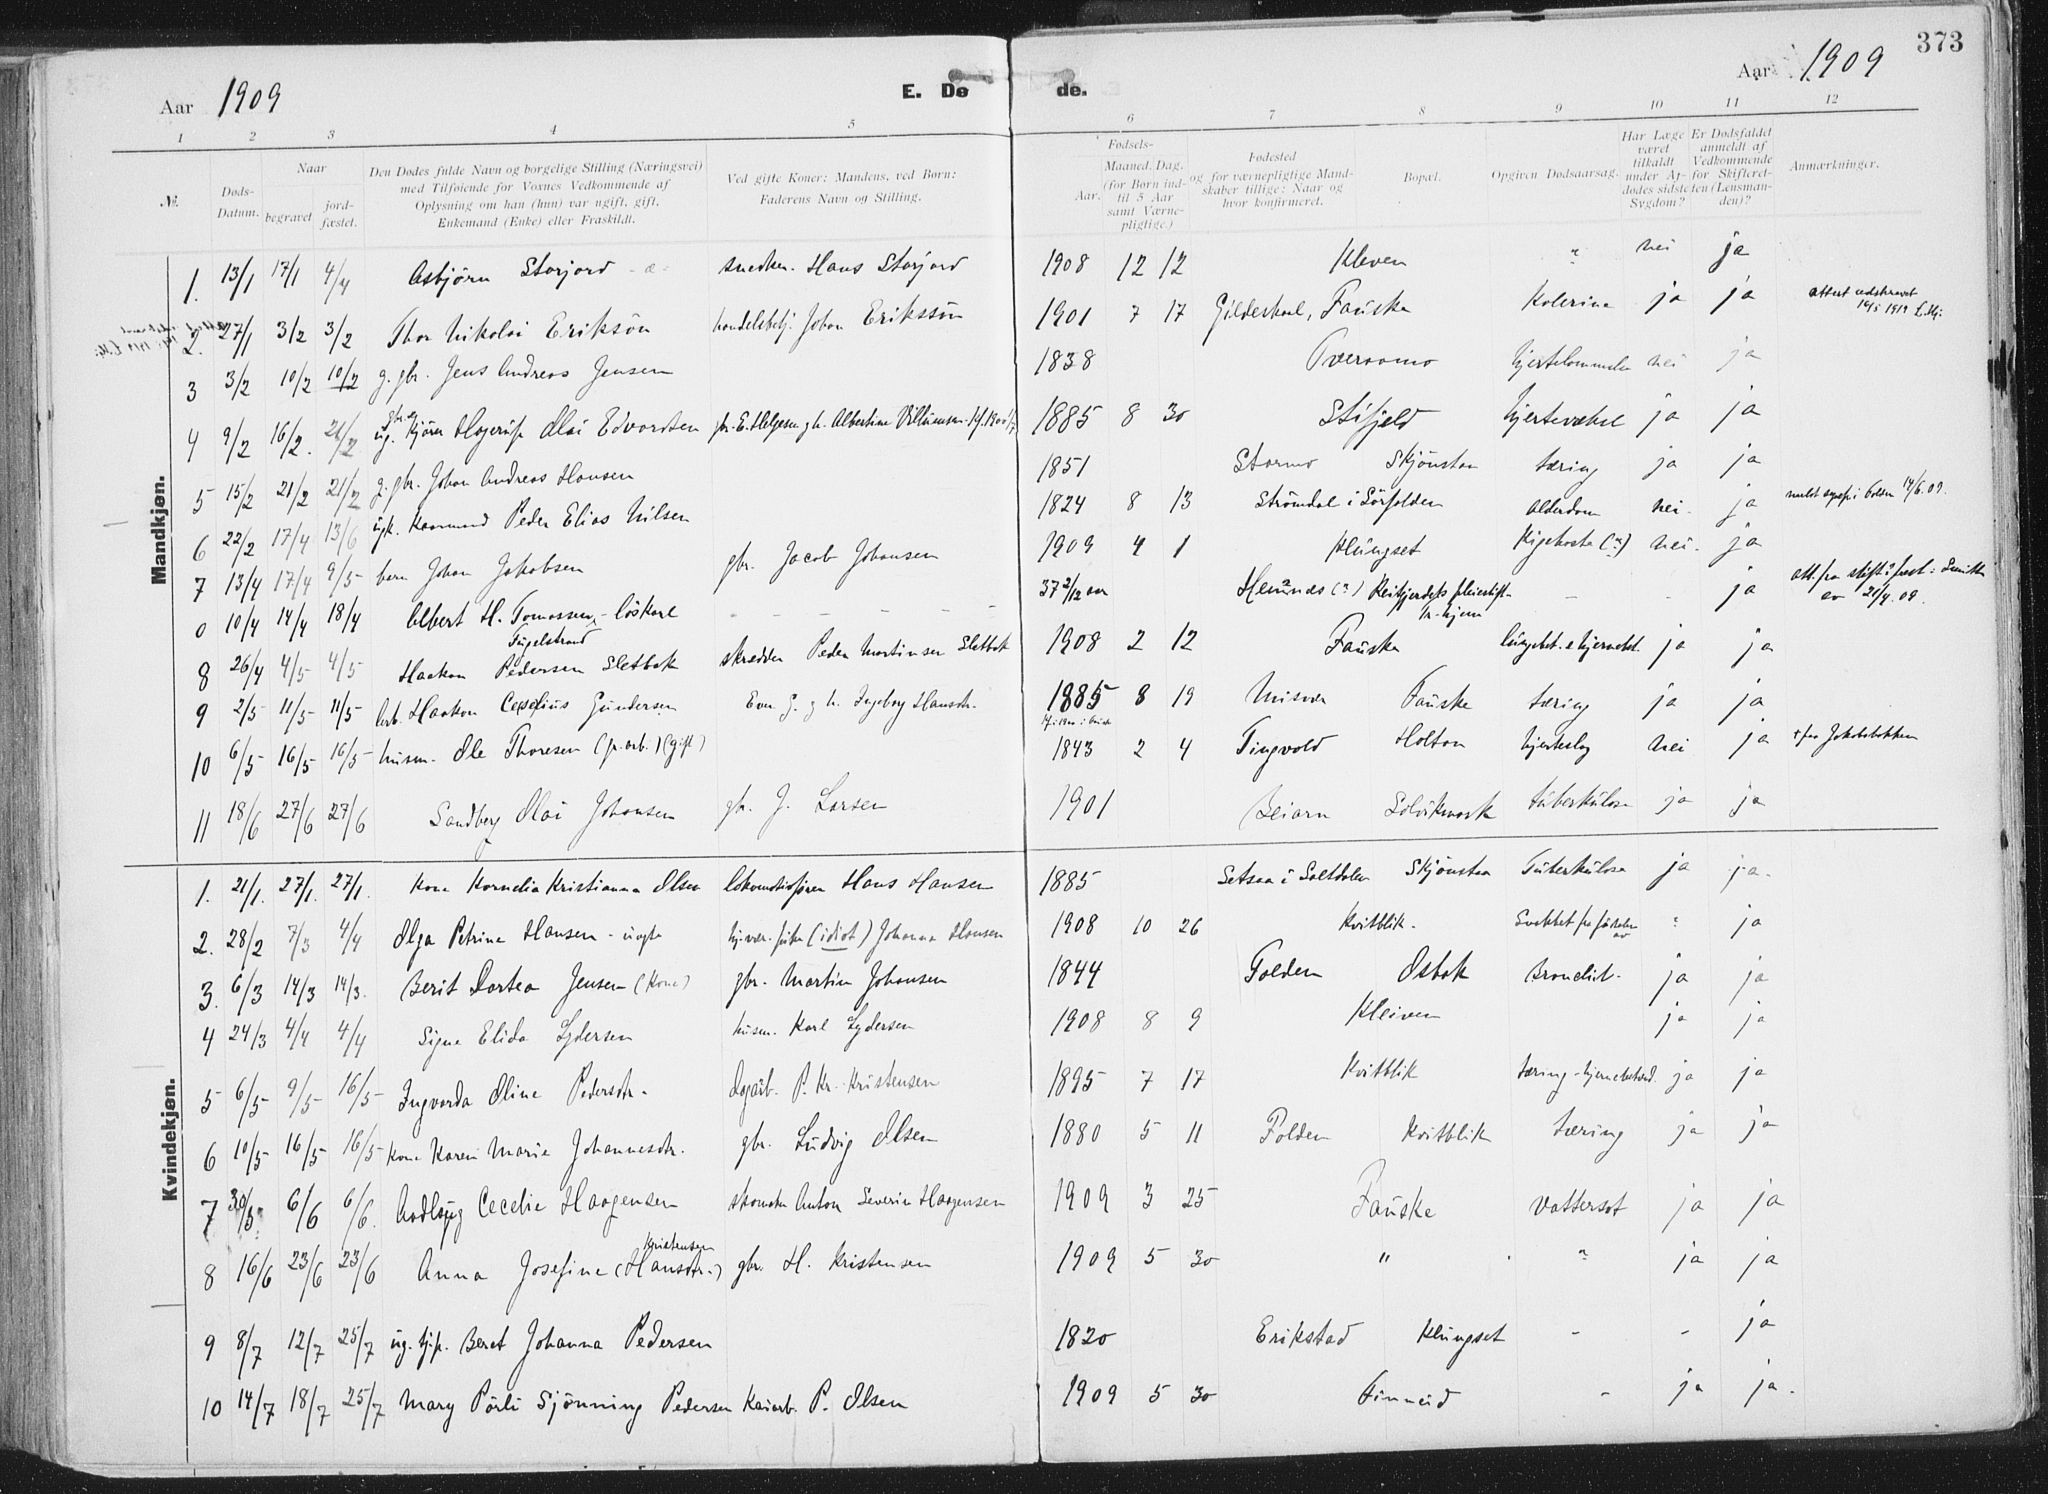 373
Aar 1909
E. Dø
de.
Aar 1909
1 2 3 4 5 6 7 8 9 10 11 12
№.
Døds-
Datum.
Naar
begravet
jord-
fæstet.
Den Dødes fulde Navn og borgelige Stilling (Næringsvei)
med Tilføiende for Voxnes Vedkommende af
Oplysning om han (hun) var ugift, gift,
Enkemand (Enke) eller Fraskildt.
Ved gifte Koner: Mandens, ved Børn:
Faderens Navn og Stilling.
Fødsels-
Aar.
Maaned. Dag.
(for Børn ind-
til 5 Aar
samt Værne-
pligtige.)
Fødested
og for værnepligtige Mand-
skaber tillige: Naar og
hvor konfirmeret.
Bopæl.
Opgiven Dødsaarsag.
Har Læge
været
tilkaldt
under Af-
dødes sidste
Sygdom?
Er Dødsfaldet
anmeldt af
Vedkommende
for Skifteret-
ten (Lensman-
den)?
Anmærkninger.
Mandkjøn.
1. 13/1 17/1 4/4 Asbjörn Storjord snedker. Hans Storjord 1908 12 12 Kleven " nei ja
2. 27/1 3/2 3/2 Thor Nikolai Eriksön handelsbetj. Johan Eriksson 1901 7 17 Gildeskaal, Fauske Kolerine ja ja attest udskrevet
14/5 1919
3 3/2 10/2 10/2 g. gbr. Jens Andreas Jensen 1838 Tveraamo hjertelammelse nei ja
4 9/2 16/2. 21/2 ug. Hagerup Olai Edvardsen E. Helgesen g h. Albertine 1885 8 30 Stifjeld hjertevæksl ja ja
5 15/2 21/2 21/2 g. gbr. Johan Andreas Hansen 1851 Stormo Skjönstaa tæring ja ja
6 22/2 17/4 13/6 Peder Elias Nilsen 1824 8 13 Strömdal i Sörfolden alderdom nei. ja 14/6.09.
7 13/4 17/4 9/5 barn Johan Jakobsen gbr. Jacob Johansen 1909 4 1 Klüngset Kigehoste (?) nei. ja
0 10/4 14/4 18/4 Albert H. Tomassen, - löskarl - - - - - 37 2/12 aar Hemnes (?) - - ja att. fra
av 21/4 09.
Fügelstrand
8 26/4 4/5 4/5 Haakon Pedersen Sletbak skrædder Peder Martinsen Sletbak 1908 2 12 Fauske ja ja
9 2/5 11/5 11/5 arb. Haakon Ceselius Gundersen Even G. g h. Ingeborg Hansdtr. 1885 8 19 Misvær Fauske tæring ja ja
10 6/5 16/5 16/5 husm. Ole Thoresen (gift) 1843 2 4 Tingvold Holtan hjerteslag nei ja
11 18/6 27/6 27/6 Sandberg Olai Johansen gbr. J. Larsen 1901 Beiarn tüberkülose ja ja
Kvindekjøn.
1. 21/1. 27/1. 27/1. Kone Kornelia Kristianna Olsen lokomotivförer Hans Hansen 1885 Setsaa i Saltdalen Skjönstaa Tüberkülose ja ja.
2. 28/2 7/3 4/4 Olga Petrine Hansen - uægte (idiot) Johanna Hansen 1908 10 26 Kvitblik. Svækket fra födselen
av " ja
3. 6/3 14/3 14/3. Berit Dortea Jensen (Kone) gbr. Martin Johansen 1844 Folden Osbak Bronchit. ja ja
4 24/3 4/4 4/4 Signe Elida Lydersen husm. Karl Lydersen 1908 8 9 Kleiven ja ja
5 6/5 9/5 16/5 Ingvarda Oline Pedersdtr. dagarb. P. Kr. Kristensen 1895 7 17 Kvitblik tæring - ja ja
6 10/5 16/5 16/5 Kone Karen Marie Johannesdtr. gbr. Ludvig Olsen 1880 5 11 Folden Kvitblik tæring ja ja
7 30/5 6/6 6/6. Aadlaug Cecelie Haagensen skomaker Anton Severin Haagensen 1909 3 25 Fauske Vattersot ja ja
Kristensen
8 16/6 23/6 23/6 Anna Josefine (Hansdtr.) gbr. H. Kristensen 1909 5 30 " " ja ja
9 8/7 12/7 25/7 ug. tj.p. Beret Johanna Pedersen 1820 Erikstad Klüngset - - ja
10 14/7 18/7 25/7 Mary Pörli Sjönning Pedersen Kaiarb. P. Olsen 1909 5 30 Finneid - ja ja.